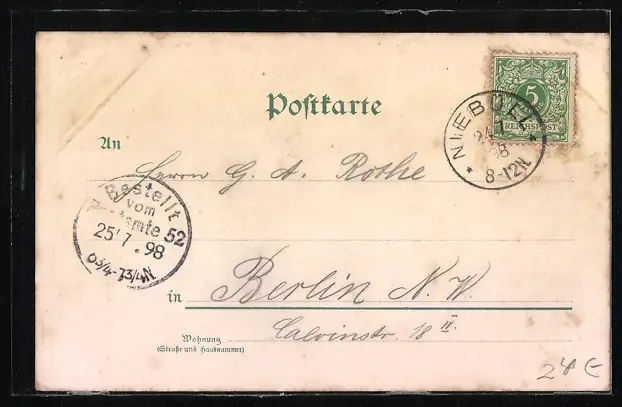 Postkarte
5
REICHSPOST
NIEBÜLL
24 7
98
8-12N.
An
Herrn G. A. Rothe
Bestellt
vom
Postamte 52
25 7. 98
6 3/4-7 3/4 N
in Berlin N. W.
Calvinstr. 18 II.
Wohnung
(Straße und Hausnummer)
24 €